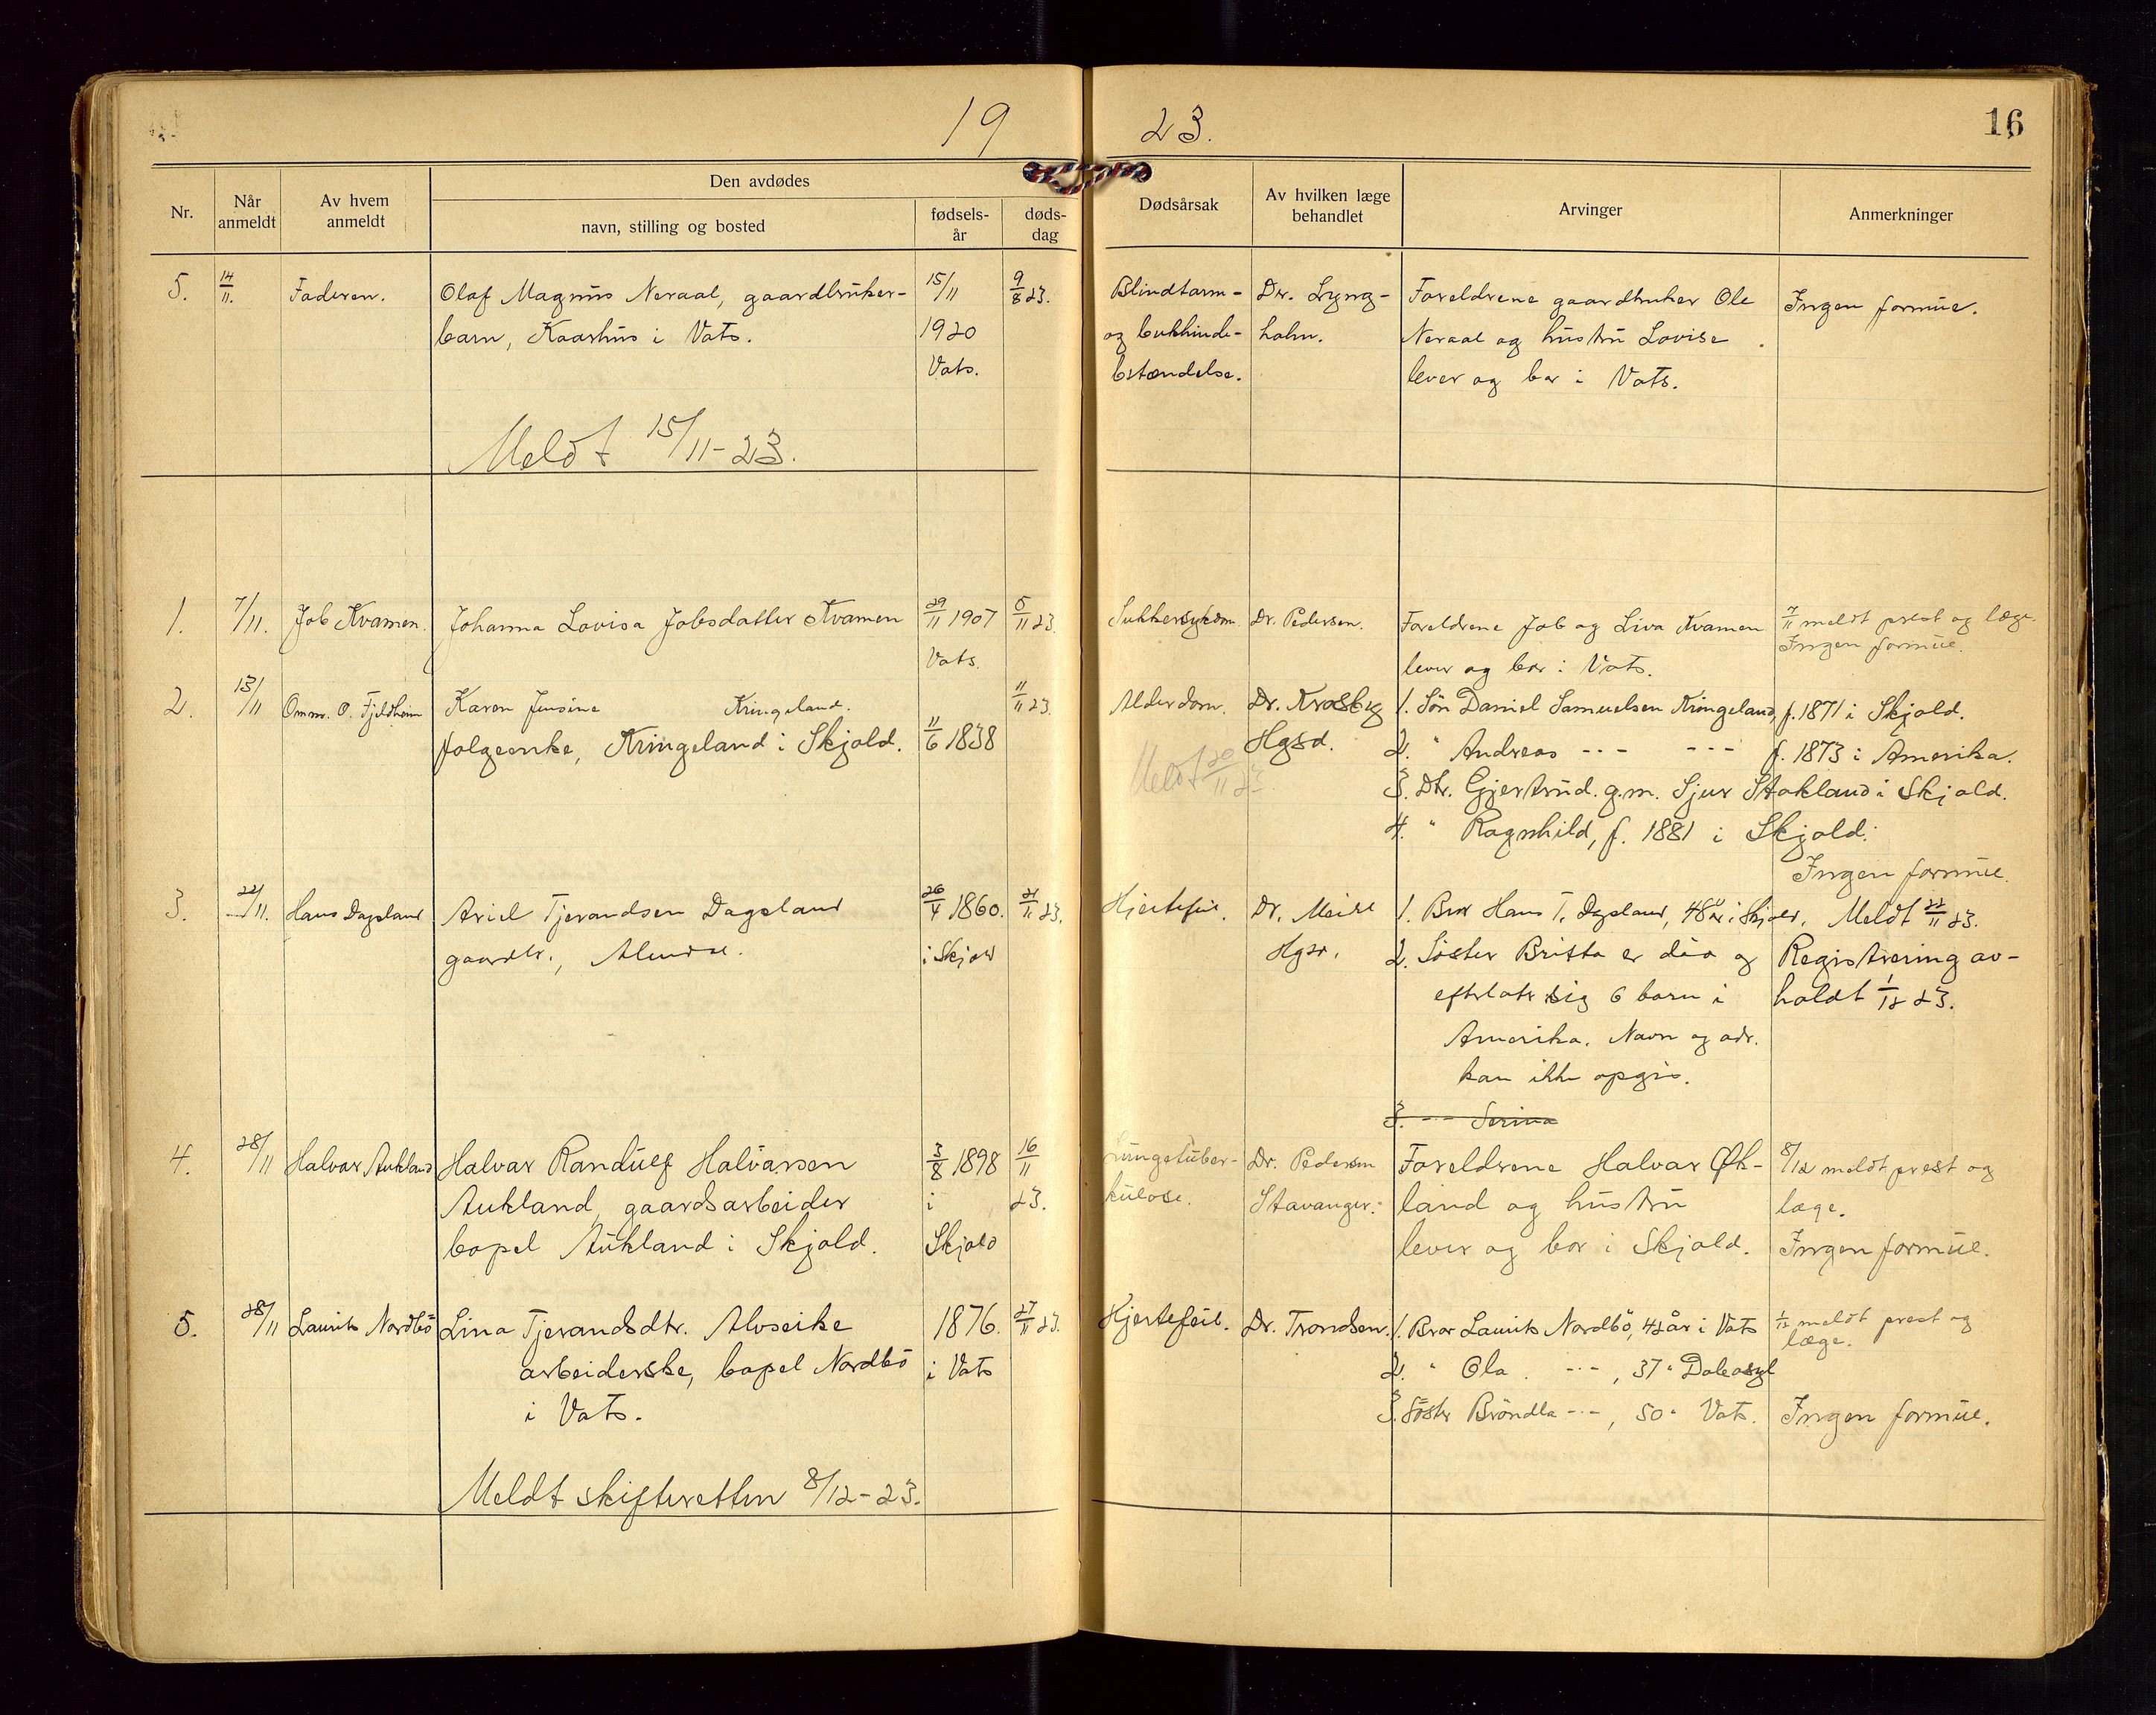 19 23.
16
Nr.
Når anmeldt
Av hvem anmeldt
Den avdødes
navn, stilling og bosted
fødsels-år
døds-dag
Dødsårsak
Av hvilken læge behandlet
Arvinger
Anmerkninger
5. 14/11. Faderen. Olaf Magnus Neraal, gaardbruker- 15/11 9/8 23. Blindtarm- Dr. Lyng- Foreldrene gaardbruker Ole Ingen formue.
barn, Kaarhus i Vats. 1920 og bukhinde- holm. Neraal og hustru Lovise
Vats. betændelse. lever og bor i Vats.
Meldt 15/11-23.
1. 7/11. Job Kvamen. Johanna Lovisa Jobsdatter Kvamen 29/11 1907 5/11 23. Sukkersykdom. Dr. Pedersen. Foreldrene Job og Liva Kvamen 7/11 meldt prest og læge.
Vats. lever og bor i Vats. Ingen formue.
2. 13/11 Omm. O. Fjeldheim Karen Jensine Kringeland. 11/11 23. Alderdom. Dr. 1. Søn Daniel Samuelsen Kringeland, f. 1871 i Skjold.
folgeenke, Kringeland i Skjold. 11/6 1838 Hgsd. 2. " Andreas -"- -"- f. 1873 i Amerika.
Meldt 20/11 23. 3. Dtr. Gjertrud. g.m. Sjur Stakland i Skjold.
4. " Ragnhild, f. 1881 i Skjold.
Ingen formue.
3. 22/11. Hans Dagsland Ariel Tjerandsen Dagsland 26/4 1860. 21/11 23. Hjertefeil. Dr. 1. Bror Hans T. Dagsland, 48 år i Skjold. Meldt 22/11 23.
gaardbr., i Skjold Hgsd. 2. Søster Britta er död og Registrering av-
efterlater sig 6 barn i holdt 1/12 23.
Amerika. Navn og adr.
kan ikke opgis.
3. -"- Serina
4. 28/11 Halvar Aukland Halvar Randulf Halvarsen 3/8 1898 16/11 Lungetuber- Dr. Pedersen Foreldrene Halvar Øk- 8/12 meldt prest og
Aukland, gaardsarbeider i 23. kulose. Stavanger. land og hustru læge.
bopel Aukland i Skjold. Skjold lever og bor i Skjold. Ingen formue.
5. 28/11 Laurits Nordbö Lina Tjerandsdtr. Alvseike 1876. 27/11 23. Hjertefeil. Dr. Trondsen. 1. Bror Laurits Nordbö, 42 år i Vats 1/12 meldt prest og
arbeiderske, bopel Nordbö i Vats 2. " Ola -"-, 37 " læge.
i Vats. 3. Söster Bröndla -"-, 50 " Vats. Ingen formue.
Meldt skifteretten 8/12-23.